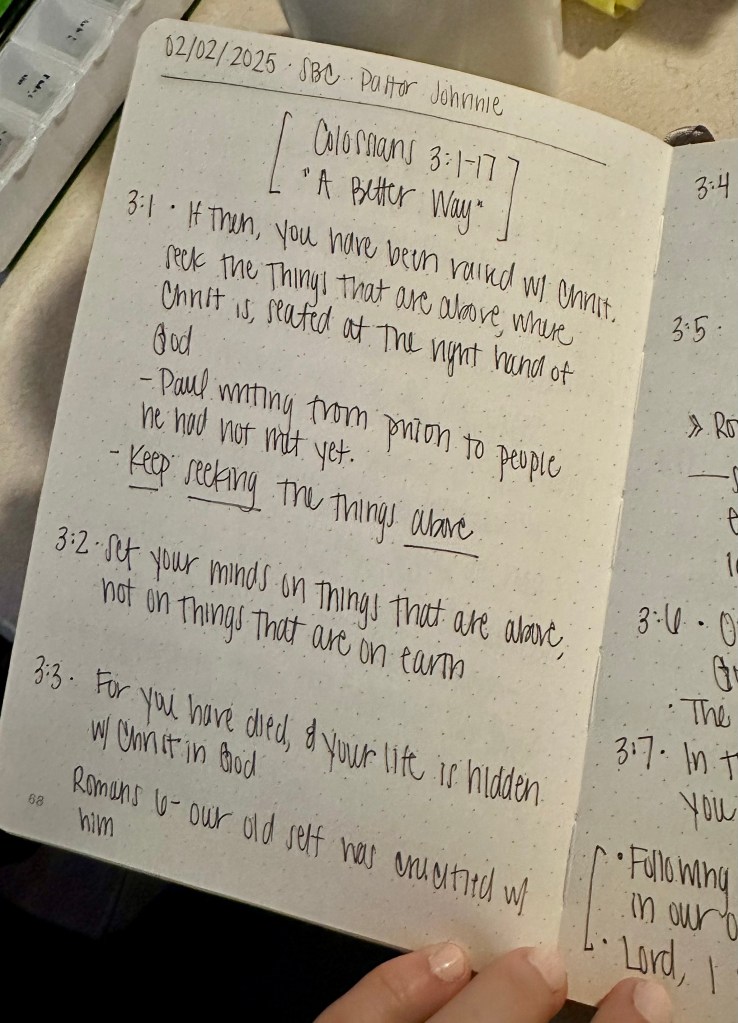 02/02/2025 · SBC · Pastor Johnnie
Colossians 3:1-17
"A Better Way"
3:1 · If then, you have been raised w/ Christ.
seek the things that are above, where
Christ is, seated at the right hand of
God
- Paul writing from prison to people
he had not met yet.
- Keep seeking the things above
3:2 · Set your minds on things that are above,
not on things that are on earth
3:3 · For you have died, & your life is hidden
w/ Christ in God
Romans 6- our old self was crucified w/
him
68
3:4
3:5 ·
» Ro
3:6 · 
· The
3:7 · In t
you
· Following
in our o
· Lord, I